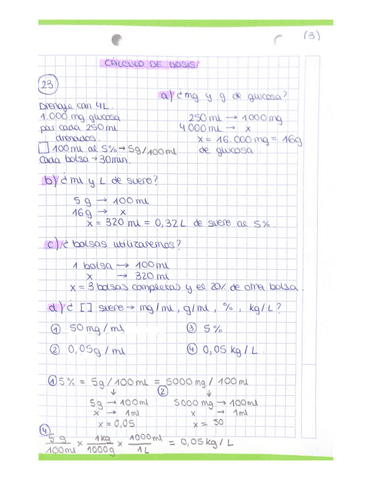 (3)
CÁLCULO DE DOSIS/
23
Drenaje con 4L.
1.000 mg glucosa
por cada 250 ml
drenados.
100 ml al 5% → 5g/100ml
Cada bolsa → 30min.
a) ¿mg y g de glucosa?
250 ml → 1000 mg
4000 ml → x
x = 16.000 mg = 16g
de glucosa
b) ¿ml y L de suero?
5 g → 100 ml
16g → x
x = 320 ml = 0,32L de suero al 5%.
c) ¿bolsas utilizaremos?
1 bolsa → 100ml
x → 320 ml
x = 3 bolsas completas y el 20% de otra bolsa.
d) ¿ [] suero → mg/ml, g/ml, %, kg/L?
① 50 mg/ml
③ 5%
② 0,05g / ml
④ 0,05 kg/L
① 5% = 5g/100ml = 5000mg/100ml
②
5g → 100ml
x → 1ml
x = 0,05
5000 mg → 100ml
x → 1ml
x = 50
④
5 g/100ml x 1kg/1000g x 1000ml/1L = 0,05kg/L